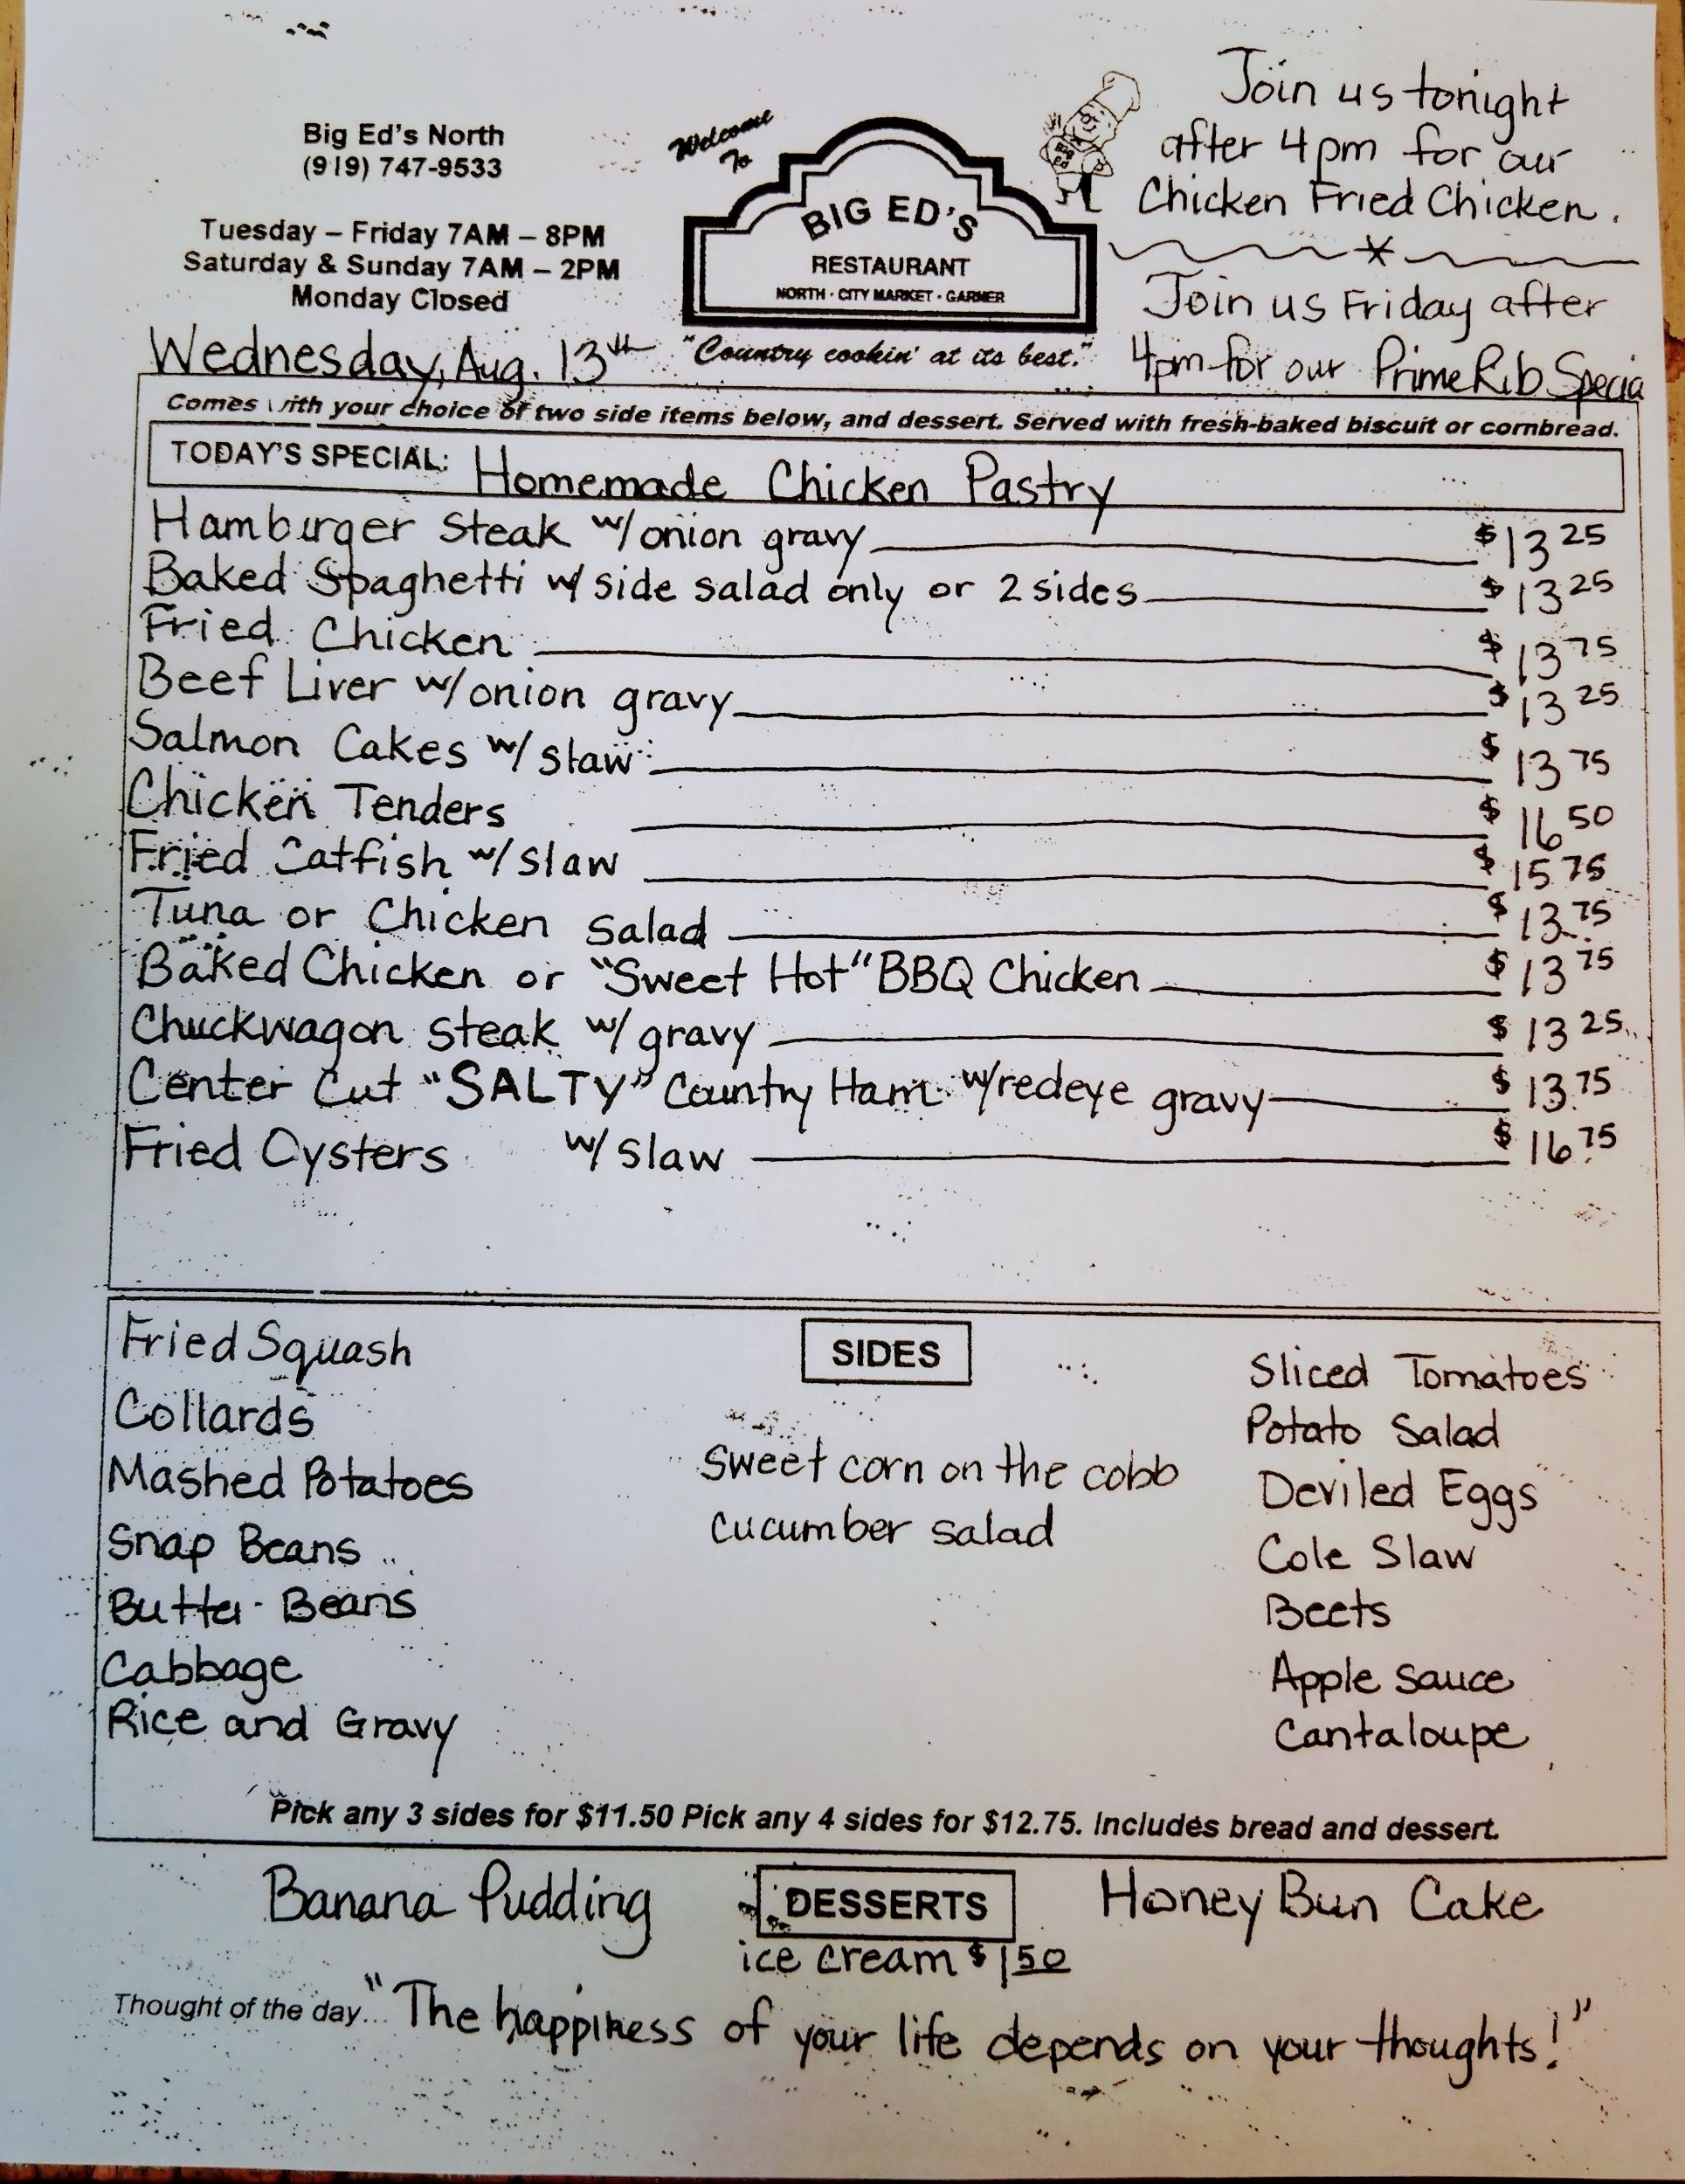 Big Ed's North
(919) 747-9533
Tuesday – Friday 7AM – 8PM
Saturday & Sunday 7AM – 2PM
Monday Closed
Wednesday, Aug. 13th
Welcome
To
BIG ED'S
RESTAURANT
NORTH · CITY MARKET · GARNER
"Country cookin' at its best."
Big
Ed
Join us tonight
after 4pm for our
Chicken Fried Chicken.
Join us Friday after
4pm for our Prime Rib Specia
Comes with your choice of two side items below, and dessert. Served with fresh-baked biscuit or cornbread.
TODAY'S SPECIAL: Homemade Chicken Pastry
Hamburger Steak w/ onion gravy $13 25
Baked Spaghetti w/ side salad only or 2 sides $13 25
Fried Chicken $13 75
Beef Liver w/ onion gravy $13 25
Salmon Cakes w/ slaw $13 75
Chicken Tenders $16 50
Fried Catfish w/ slaw $15 75
Tuna or Chicken Salad $13.75
Baked Chicken or "Sweet Hot" BBQ Chicken $13 75
Chuckwagon Steak w/ gravy $13 25
Center Cut "SALTY" Country Ham w/ redeye gravy $13.75
Fried Oysters w/ slaw $16.75
SIDES
Fried Squash
Collards
Mashed Potatoes
Snap Beans
Butter Beans
Cabbage
Rice and Gravy
Sweet corn on the cobb
cucumber salad
Sliced Tomatoes
Potato Salad
Deviled Eggs
Cole Slaw
Beets
Apple Sauce
Cantaloupe
Pick any 3 sides for $11.50 Pick any 4 sides for $12.75. Includes bread and dessert.
Banana Pudding DESSERTS Honey Bun Cake
ice cream $1 50
Thought of the day... "The happiness of your life depends on your thoughts!"